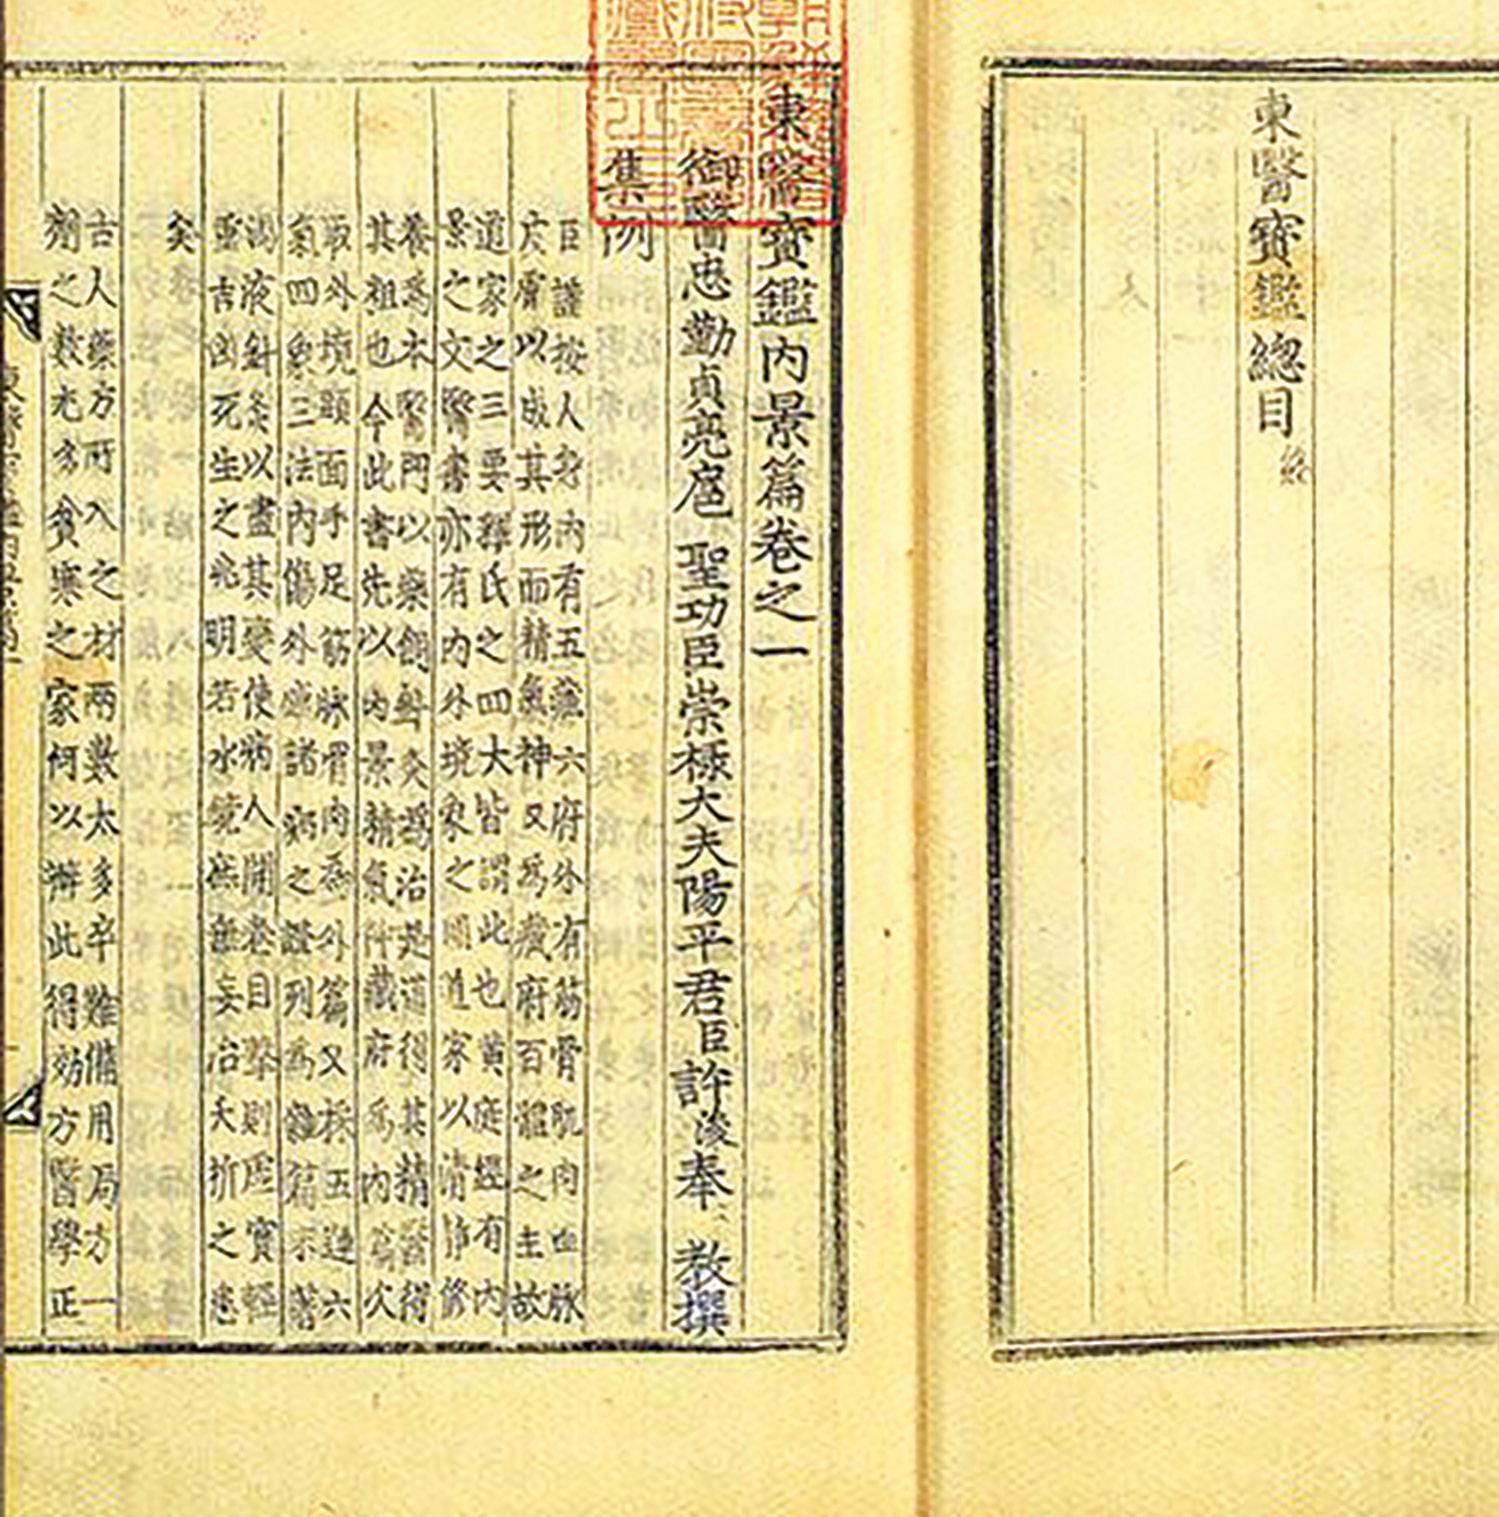 東醫寶鑑總目 終
東醫寶鑑內景篇卷之一
御醫忠勤貞亮扈 聖功臣崇祿大夫陽平君臣許浚奉 教撰
集例
臣謹按人身內有五藏六府外有筋骨肌肉血脉
皮膚以成其形而精氣神又爲藏府百體之主故
道家之三要釋氏之四大皆謂此也黃庭經有內
景之文醫書亦有內外境象之圖道家以清靜修
養爲本醫門以藥餌針灸爲治是道得其精醫得
其粗也今此書先以內景精氣神藏府爲內篇次
取外境頭面手足筋脉骨肉爲外篇又採五運六
氣四象三法內傷外感諸病之證列爲雜篇末著
湯液針灸以盡其變使病人開卷目擊則虛實輕
重吉凶死生之兆明若水鏡庶無妄治夭折之患
矣
古人藥方所入之材兩數太多卒難備用局方一
劑之數尤多貧寒之家何以辦此得効方醫學正